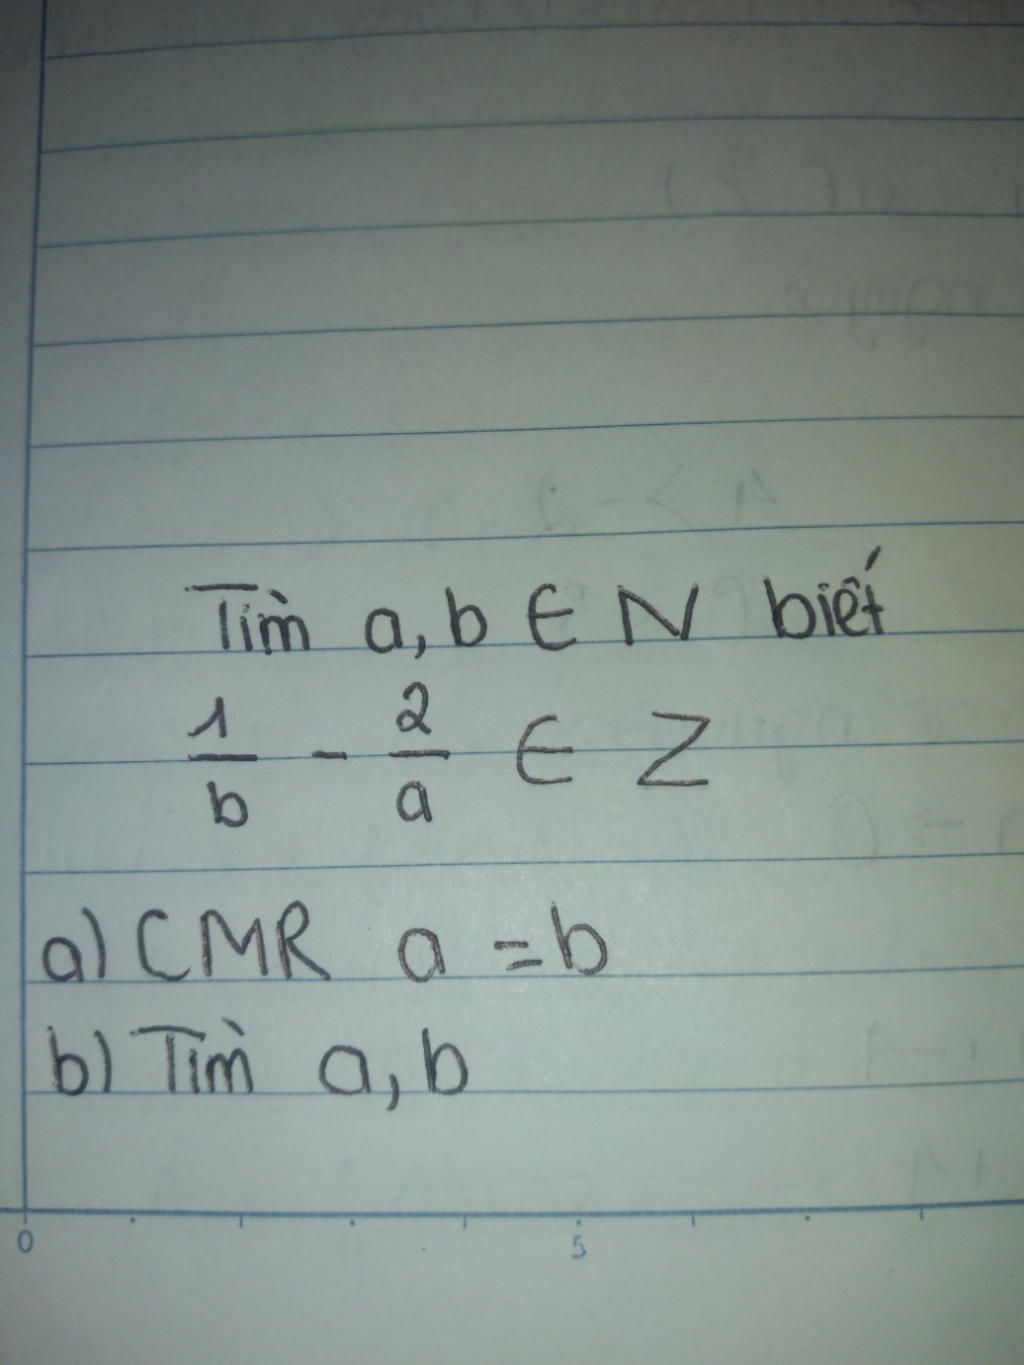 Tìm a, b ∈ N biết
1/b - 2/a ∈ Z
a) CMR a = b
b) Tìm a, b
0 5